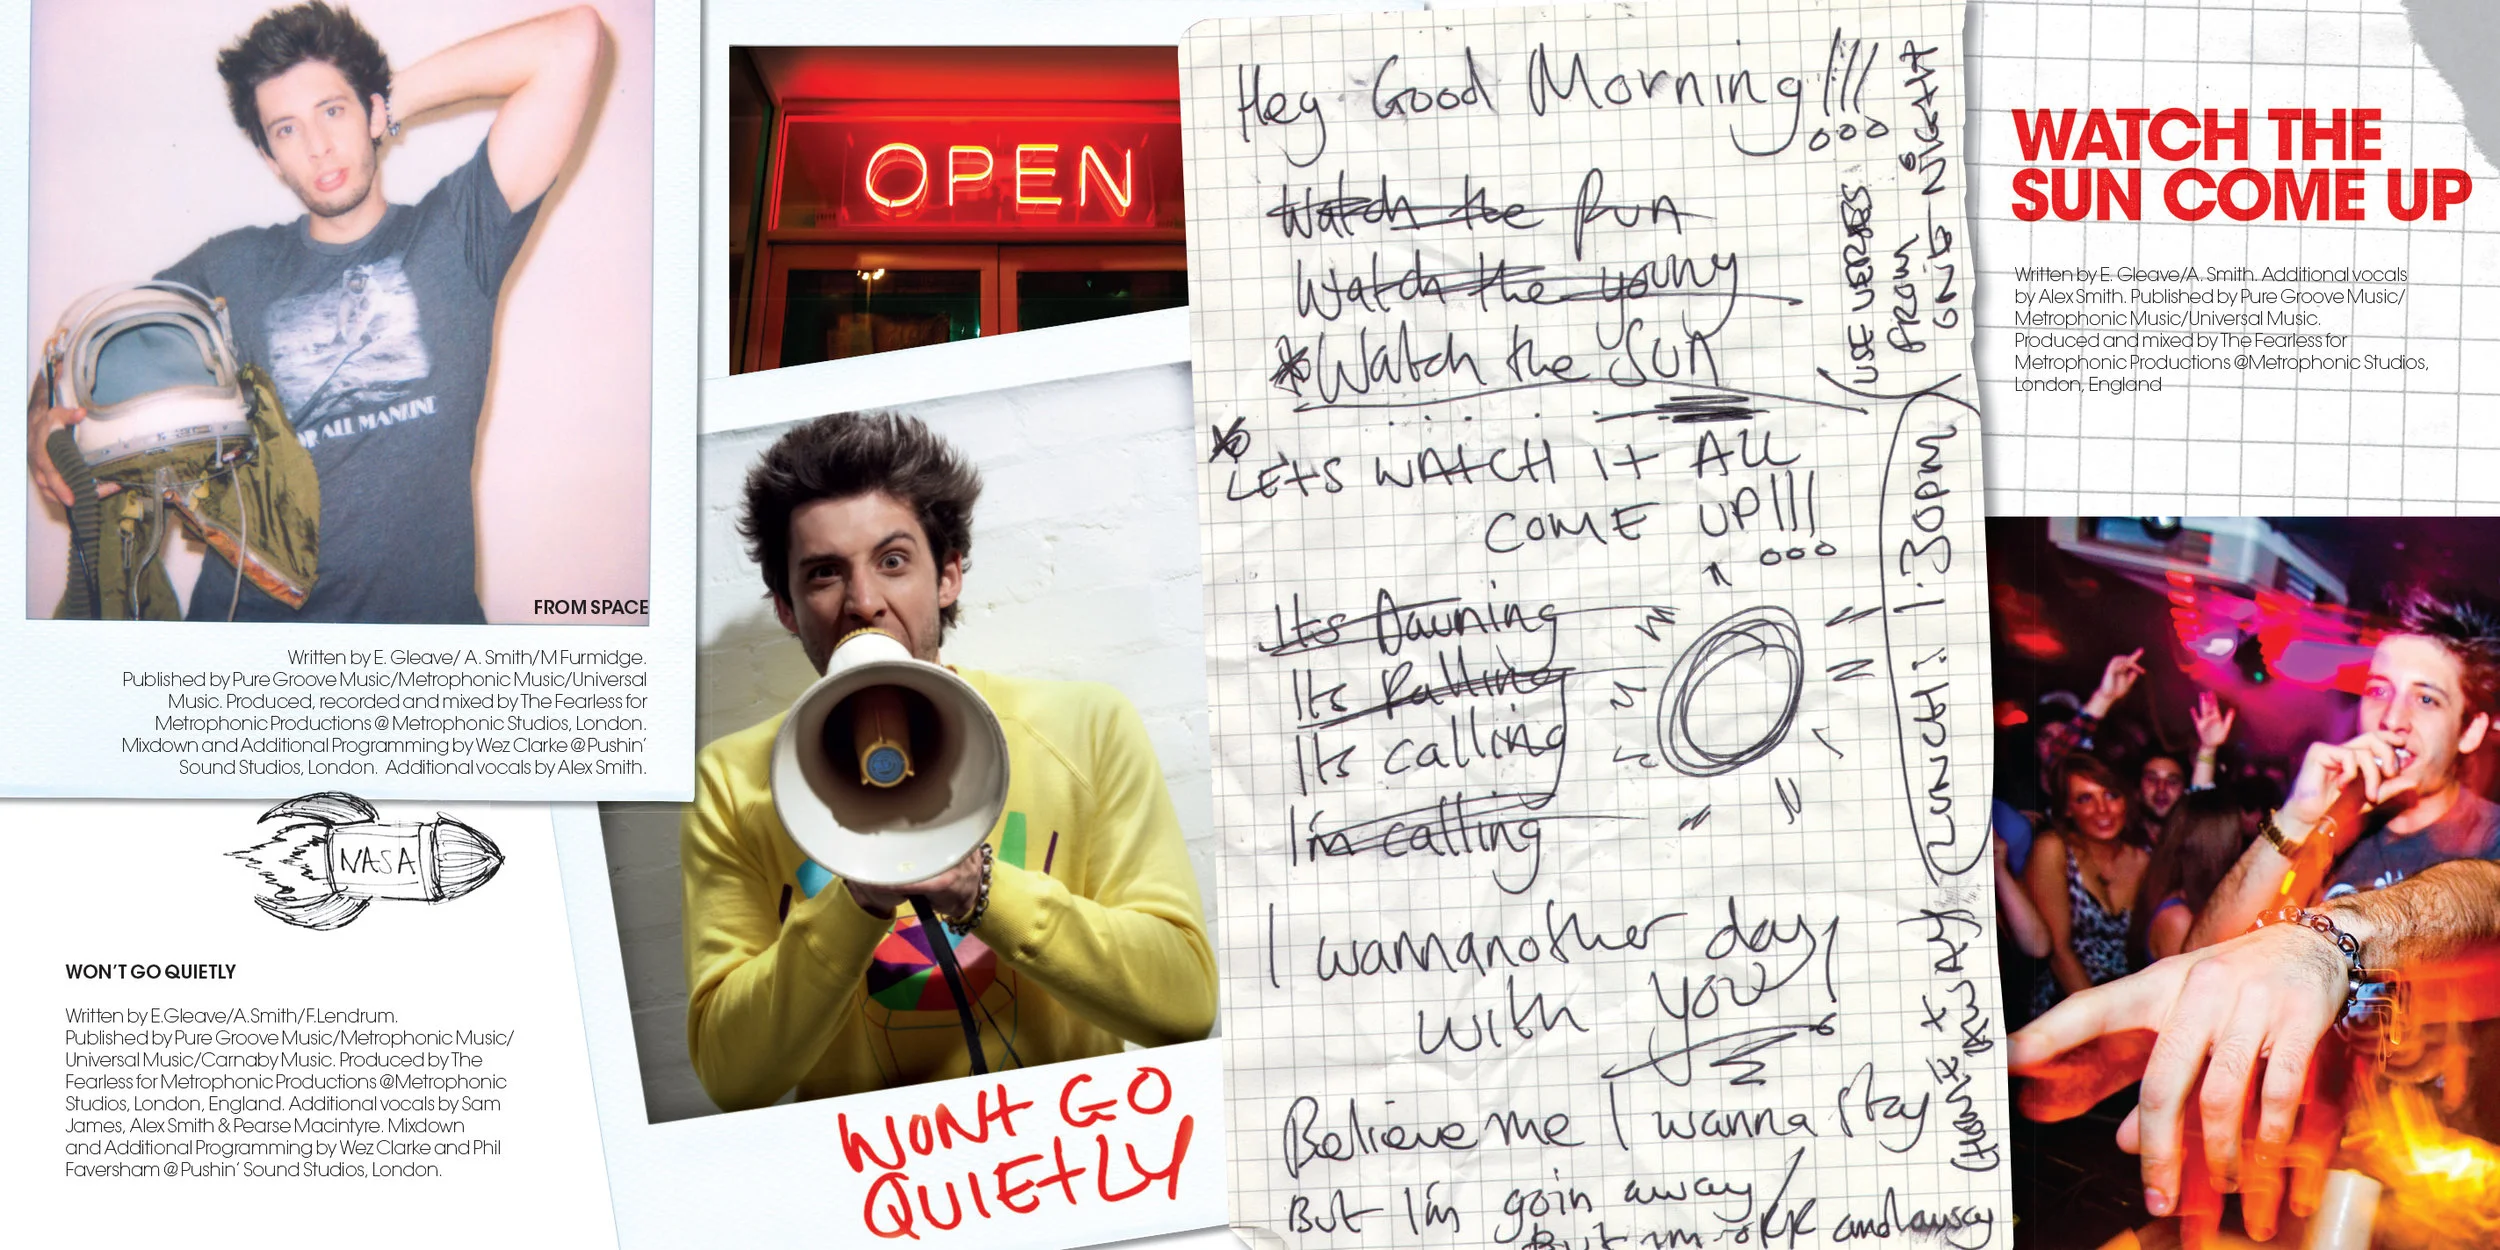 OPEN
FOR ALL MANKIND
FROM SPACE
Written by E. Gleave/ A. Smith/M Furmidge.
Published by Pure Groove Music/Metrophonic Music/Universal
Music. Produced, recorded and mixed by The Fearless for
Metrophonic Productions @ Metrophonic Studios, London.
Mixdown and Additional Programming by Wez Clarke @ Pushin'
Sound Studios, London. Additional vocals by Alex Smith.
NASA
WON'T GO QUIETLY
Written by E.Gleave/A.Smith/F.Lendrum.
Published by Pure Groove Music/Metrophonic Music/
Universal Music/Carnaby Music. Produced by The
Fearless for Metrophonic Productions @Metrophonic
Studios, London, England. Additional vocals by Sam
James, Alex Smith & Pearse Macintyre. Mixdown
and Additional Programming by Wez Clarke and Phil
Faversham @ Pushin' Sound Studios, London.
WONT GO
QUIETLY
Hey Good Morning!!!
Watch the Run
Watch the young
Watch the SUN
LETS WATCH IT ALL
COME UP!!!
Its Dawning
Its falling
Its calling
I'm calling
I wannanother day
with you
Believe me I wanna stay
But I'm goin away
But im
(USE VERSES
FROM
ONE NIGHT
(LUNCH! 1:30PM)
WATCH THE
SUN COME UP
Written by E. Gleave/A. Smith. Additional vocals
by Alex Smith. Published by Pure Groove Music/
Metrophonic Music/Universal Music.
Produced and mixed by The Fearless for
Metrophonic Productions @Metrophonic Studios,
London, England